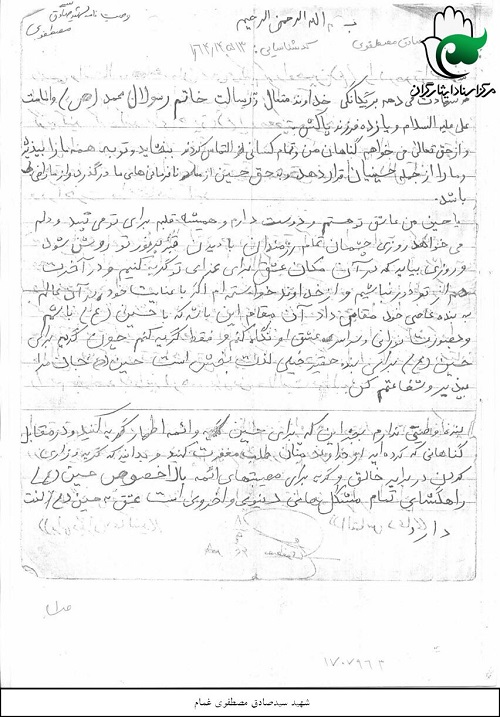 وصیت نامه شهید صادق
مصطفوی
بسم الله الرحمن الرحیم
صادق مصطفوی
کد شناسایی:
مرکز اسناد ایثارگران
شهادت می دهم بر یگانگی خداوند متعال و رسالت خاتم رسولان محمد (ص) و امامت
علی علیه السلام و یازده فرزند پاکش
و از حق تعالی می خواهم گناهان من و تمام کسانی که التماس کردند ببخشاید و توبه همه ما را بپذیرد
و ما را از جمله قرار دهد و به حق حسین از ما و نافرمانی های ما درگذرد و از ما راضی
باشد.
یا حسین من عاشق تو هستم و دوست دارم و همیشه قلبم برای تو می تپد و دلم
می خواهد روزی چشمان تمام رزمندان با دیدن قبر تو روشن شود
و روزی بیاید که در آن مکان عشق برای عزای تو گریه کنیم و در آخرت
هم از تو دور نباشیم و از خداوند خواسته ام اگر با عنایت خود در آن عالم
به بنده عاصی خود مقامی داد آن مقام این باشد که با حسین (ع) باشم
عشق او نگاه کنم و فقط گریه کنم چون گریه برای
حسین (ع) برای بنده حقیر خیلی لذت بخش است حسین (ع) جان مرا
بپذیر و شفاعتم کن.
بنده وصیتی ندارم بجز این که برای حسین گریه و ائمه اطهار گریه کنید و در مقابل
گناهانی که کرده اید از خداوند طلب مغفرت کنند و بدانند که گریه و زاری
کردن در برابر خالق و گریه برای مصیبتهای ائمه بالاخصوص حسین (ع)
راهگشای تمام مشکل هایی دنیوی و اخروی است عشق به حسین (ع) لذت
دارد
۱۷۰۷۹۶۳
شهید سیدصادق مصطفوی غمام